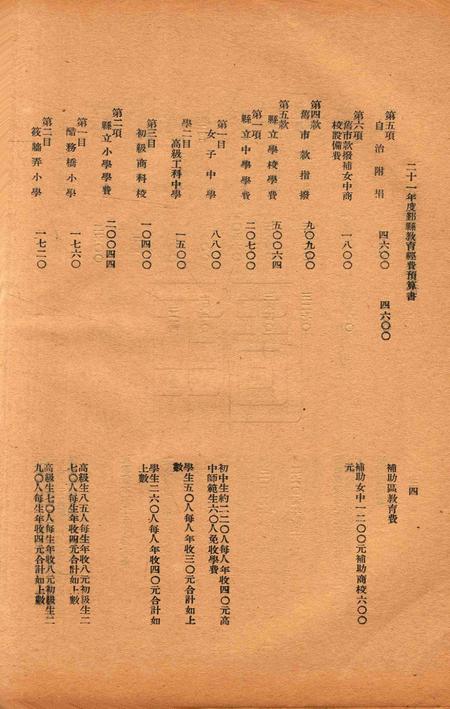 二十一年度鄞縣教育經費預算書
四
第五項
自治附捐 四六〇〇 四六〇〇
補助區教育費
第六項
舊市款撥補女中商
校設備費 一八〇〇
補助女中一二〇〇元補助商校六〇〇
元
第四款
舊市款指撥 九〇九〇〇
第五款
縣立學校學費 五〇〇六四
第一項
縣立中學學費 二〇七〇〇
第一目
女子中學 八八〇〇
初中生約二二〇人每人年收四〇元高
中師範生六〇人免收學費
學二目
高級工科中學 一五〇〇
學生五〇人每人年收三〇元合計如上
數
第三目
初級商科校 一〇四〇〇
學生二六〇人每人年收四〇元合計如
上數
第二項
縣立小學學費 二〇〇四四
第一目
醋務橋小學 一七六〇
高級生八五人每生年收八元初級生二
七〇人每生年收四元合計如上數
第二目
筱牆弄小學 一七二〇
高級生七〇人每生年收八元初級生二
九〇人每生年收四元合計如上數